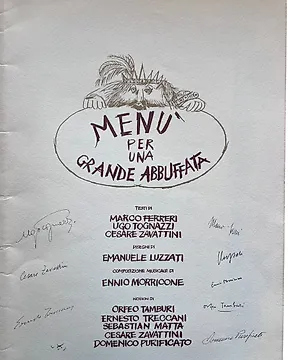 MENU'
PER
UNA
GRANDE ABBUFFATA
TESTI DI
MARCO FERRERI
UGO TOGNAZZI
CESARE ZAVATTINI
DISEGNI DI
EMANUELE LUZZATI
COMPOSIZIONE MUSICALE DI
ENNIO MORRICONE
INCISIONI DI
ORFEO TAMBURI
ERNESTO TRECCANI
SEBASTIAN MATTA
CESARE ZAVATTINI
DOMENICO PURIFICATO
Cesare Zavattini
Orfeo Tamburi
Domenico Purificato